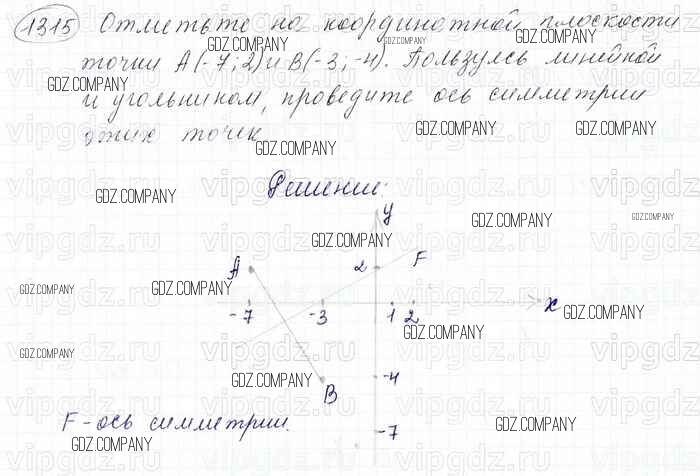 1315 Отметьте на координатной плоскости
точки A(-7; 2) и B(-3; -4). Пользуясь линейкой
и угольником, проведите ось симметрии
этих точек
Решение:
y
A 2 F
-7 -3 1 2 x
-4
B
F - ось симметрии.
-7
GDZ.COMPANY
vipgdz.ru